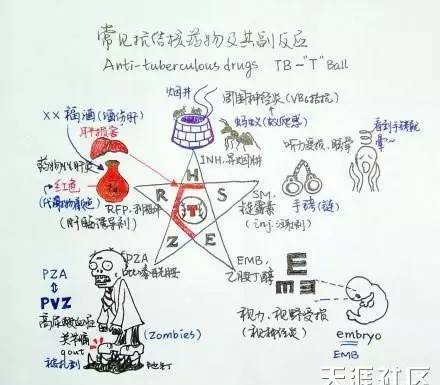 常见抗结核药物及其副反应
Anti-tuberculous drugs TB-"T" Ball
烟井
周围神经炎(VB6拮抗)
××福酒(酒伤肝)
肝损害
蚂蚁
看到手铐就晕~
听力受损、眩晕
药物性肝炎
INH.异烟肼
红色
(代谢物颜色)
RFP.利福平
(肝酶诱导剂)
H
R
S
T
Z
E
SM.
链霉素
手铐(链)
PZA
吡嗪酰胺
EMB.
乙胺丁醇
PZA
PVZ
高尿酸血症
关节痛
gout
(Zombies)
E
m
视力、视野受损
(视神经炎)
embryo
EMB
天涯社区